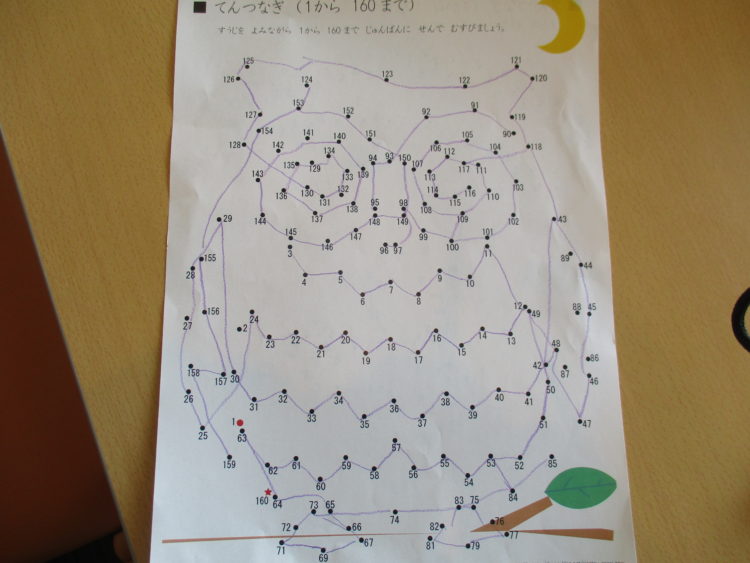 ■ てんつなぎ (1から 160まで)
すうじを よみながら 1から 160まで じゅんばんに せんで むすびましょう。
125
121
126
124
123
122
120
153
152
92
91
119
127
154
90
128
141
140
151
106
105
118
142
134
94
93
150
112
104
135
129
139
107
117
111
133
113
143
130
132
103
136
131
114
116
110
115
137
138
95
98
108
109
29
144
148
149
102
43
145
147
99
101
146
96
97
100
3
11
155
89
44
28
4
5
9
10
6
7
8
156
24
12
49
88
45
27
2
22
20
16
14
23
21
18
15
13
19
17
48
86
158
157
30
42
87
46
50
26
32
34
38
40
31
36
41
33
35
37
39
1
51
47
25
63
57
159
62
61
59
55
53
52
85
58
56
60
54
160
64
84
73
65
74
83
75
72
66
82
76
77
71
67
81
79
69